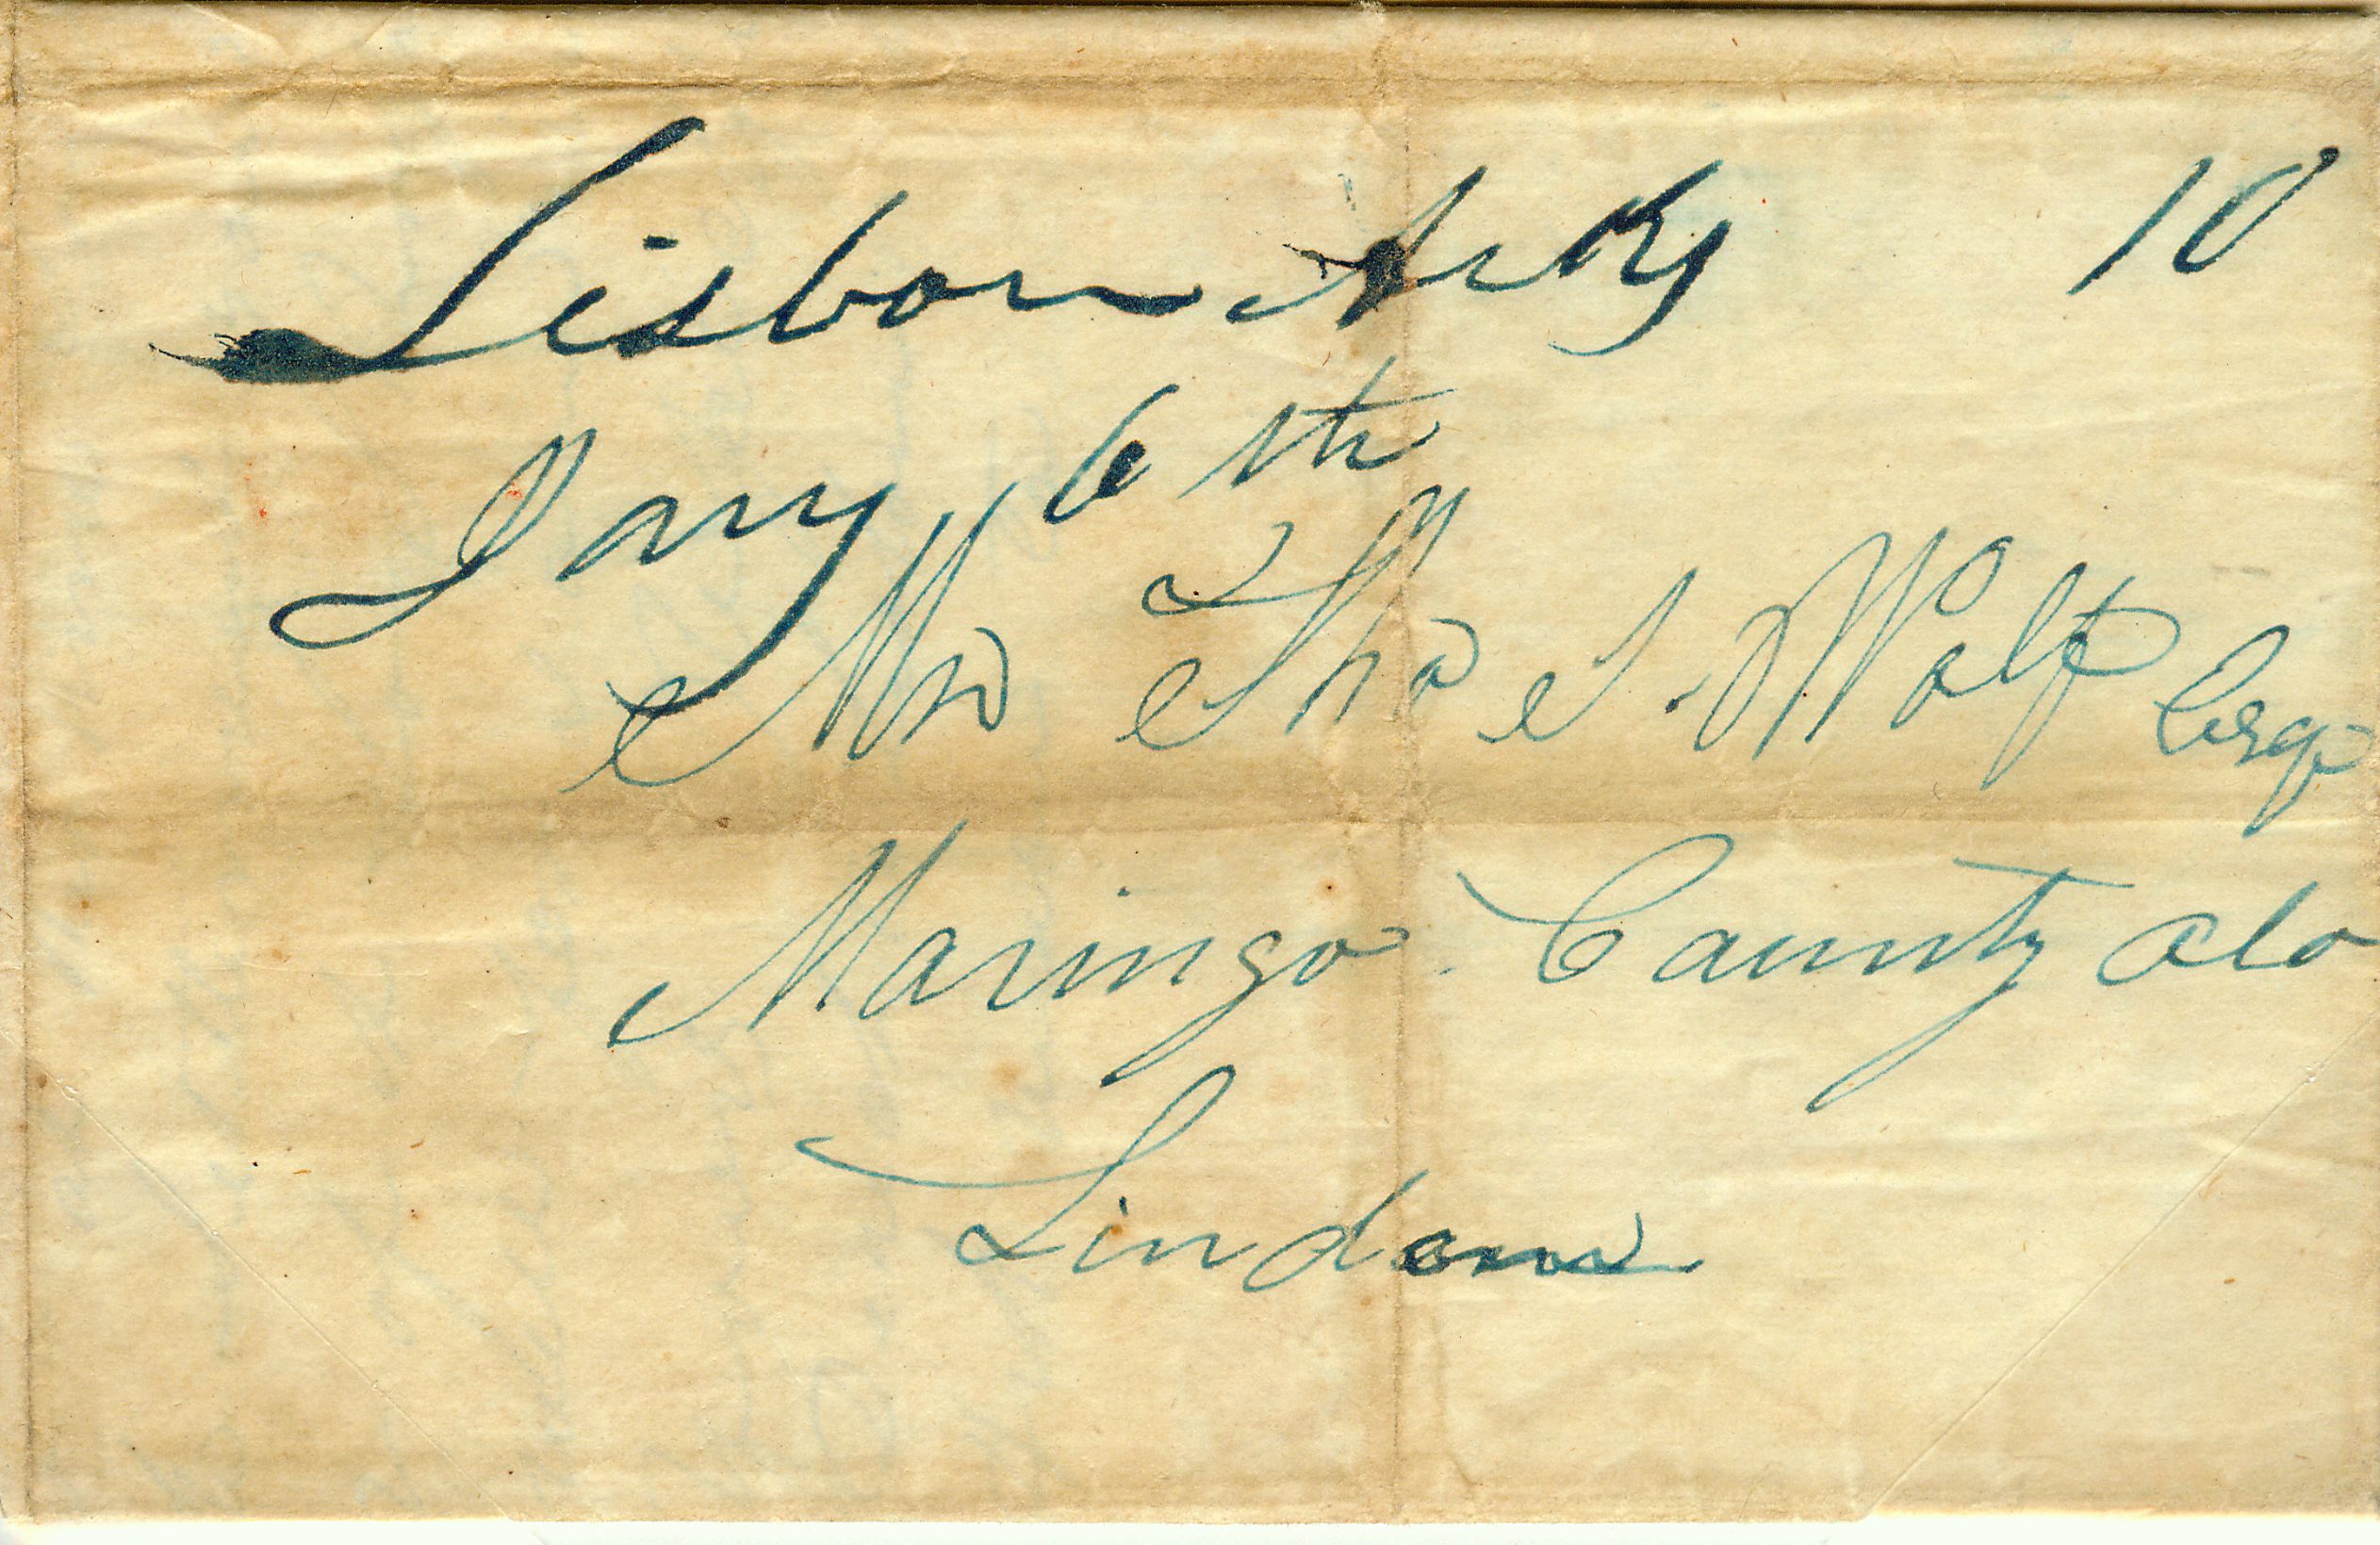 Lisbon Arks 10
Jany 6th
Mr Tho S. Wolf Esqr
Maringo County Ala
Linden